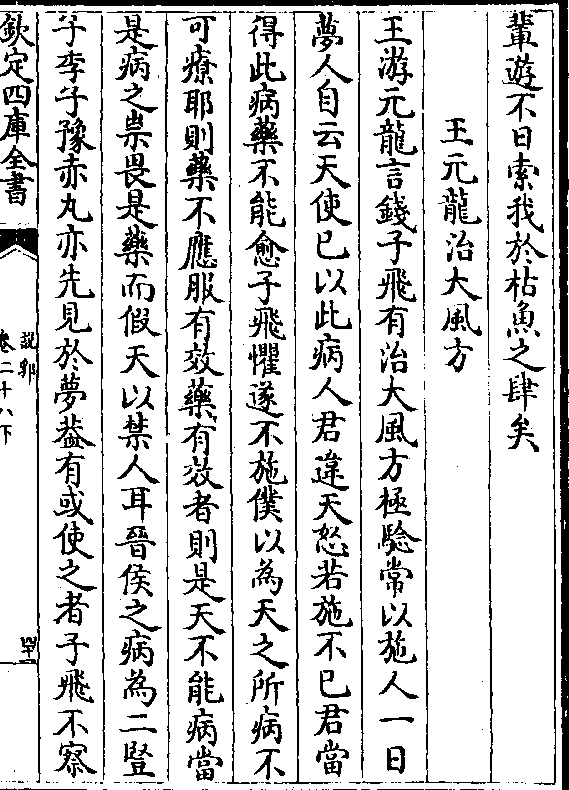 輩遊不日索我於枯魚之肆矣
王元龍治大風方
王游元龍言錢子飛有治大風方極驗常以施人一日
夢人自云天使已以此病人君違天怒若施不已君當
得此病藥不能愈子飛懼遂不施僕以為天之所病不
可療耶則藥不應服有效藥有效者則是天不能病當
是病之祟畏是藥而假天以禁人耳晉侯之病為二豎
子李子豫赤丸亦先見於夢葢有或使之者子飛不察
欽定四庫全書
說郛
卷二十八下